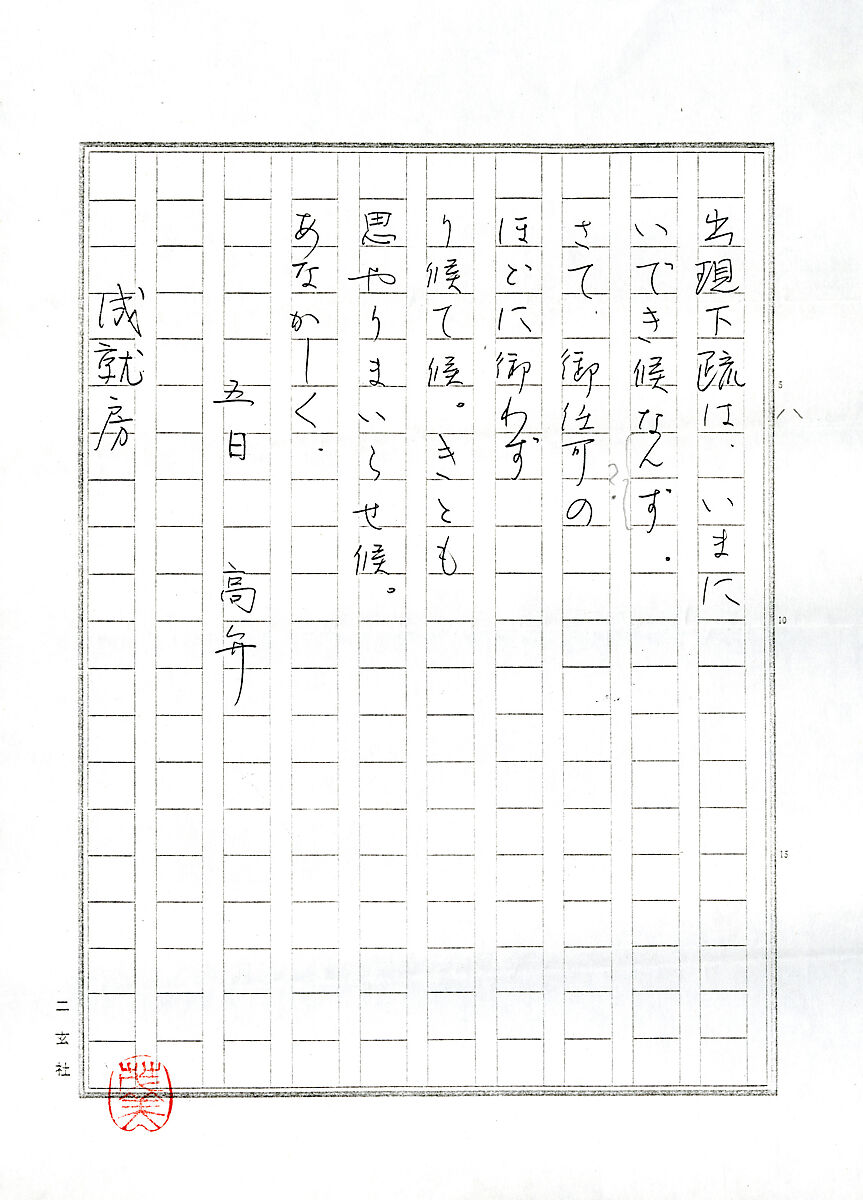 出現下疏は、いまに
いでき候なんず。
さて、御住可の
ほどに御わず
り候て候。きとも
思やりまいらせ候。
あなかしく、
五日 高弁
成就房
5
10
15
二玄社